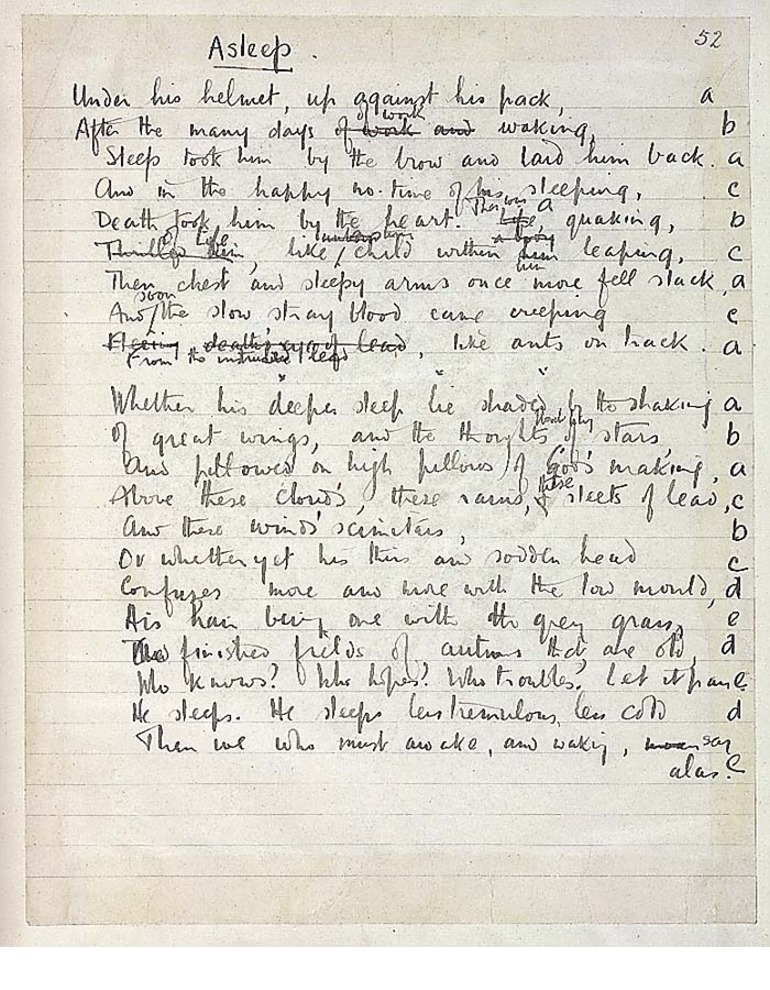 Asleep.
52
Under his helmet, up against his pack, a
After the many days of work work and waking, b
Sleep took him by the brow and laid him back. a
And in the happy no-time of his sleeping, c
Death took him by the heart. There was a Life, quaking, b
Thrilled him, Of Life, like child within him leaping, c
Then chest and sleepy arms once more fell slack, a
And soon the slow stray blood came creeping c
From the intruding lead, like ants on track. a
Whether his deeper sleep lie shaded by the shaking a
Of great wings, and the thoughts of stars b
And pillowed on high pillows of God's making, a
Above these clouds, these rains, these sleets of lead, c
And these winds' scimitars, b
Or whether yet his thin and sodden head c
Confuses more and more with the low mould, d
His hair being one with the grey grass, e
finished fields of autumns that are old, d
Who knows? Who hopes? Who troubles? Let it pass! e
He sleeps. He sleeps less tremulous, less cold d
Than we who must awake, and waking, say
alas! e